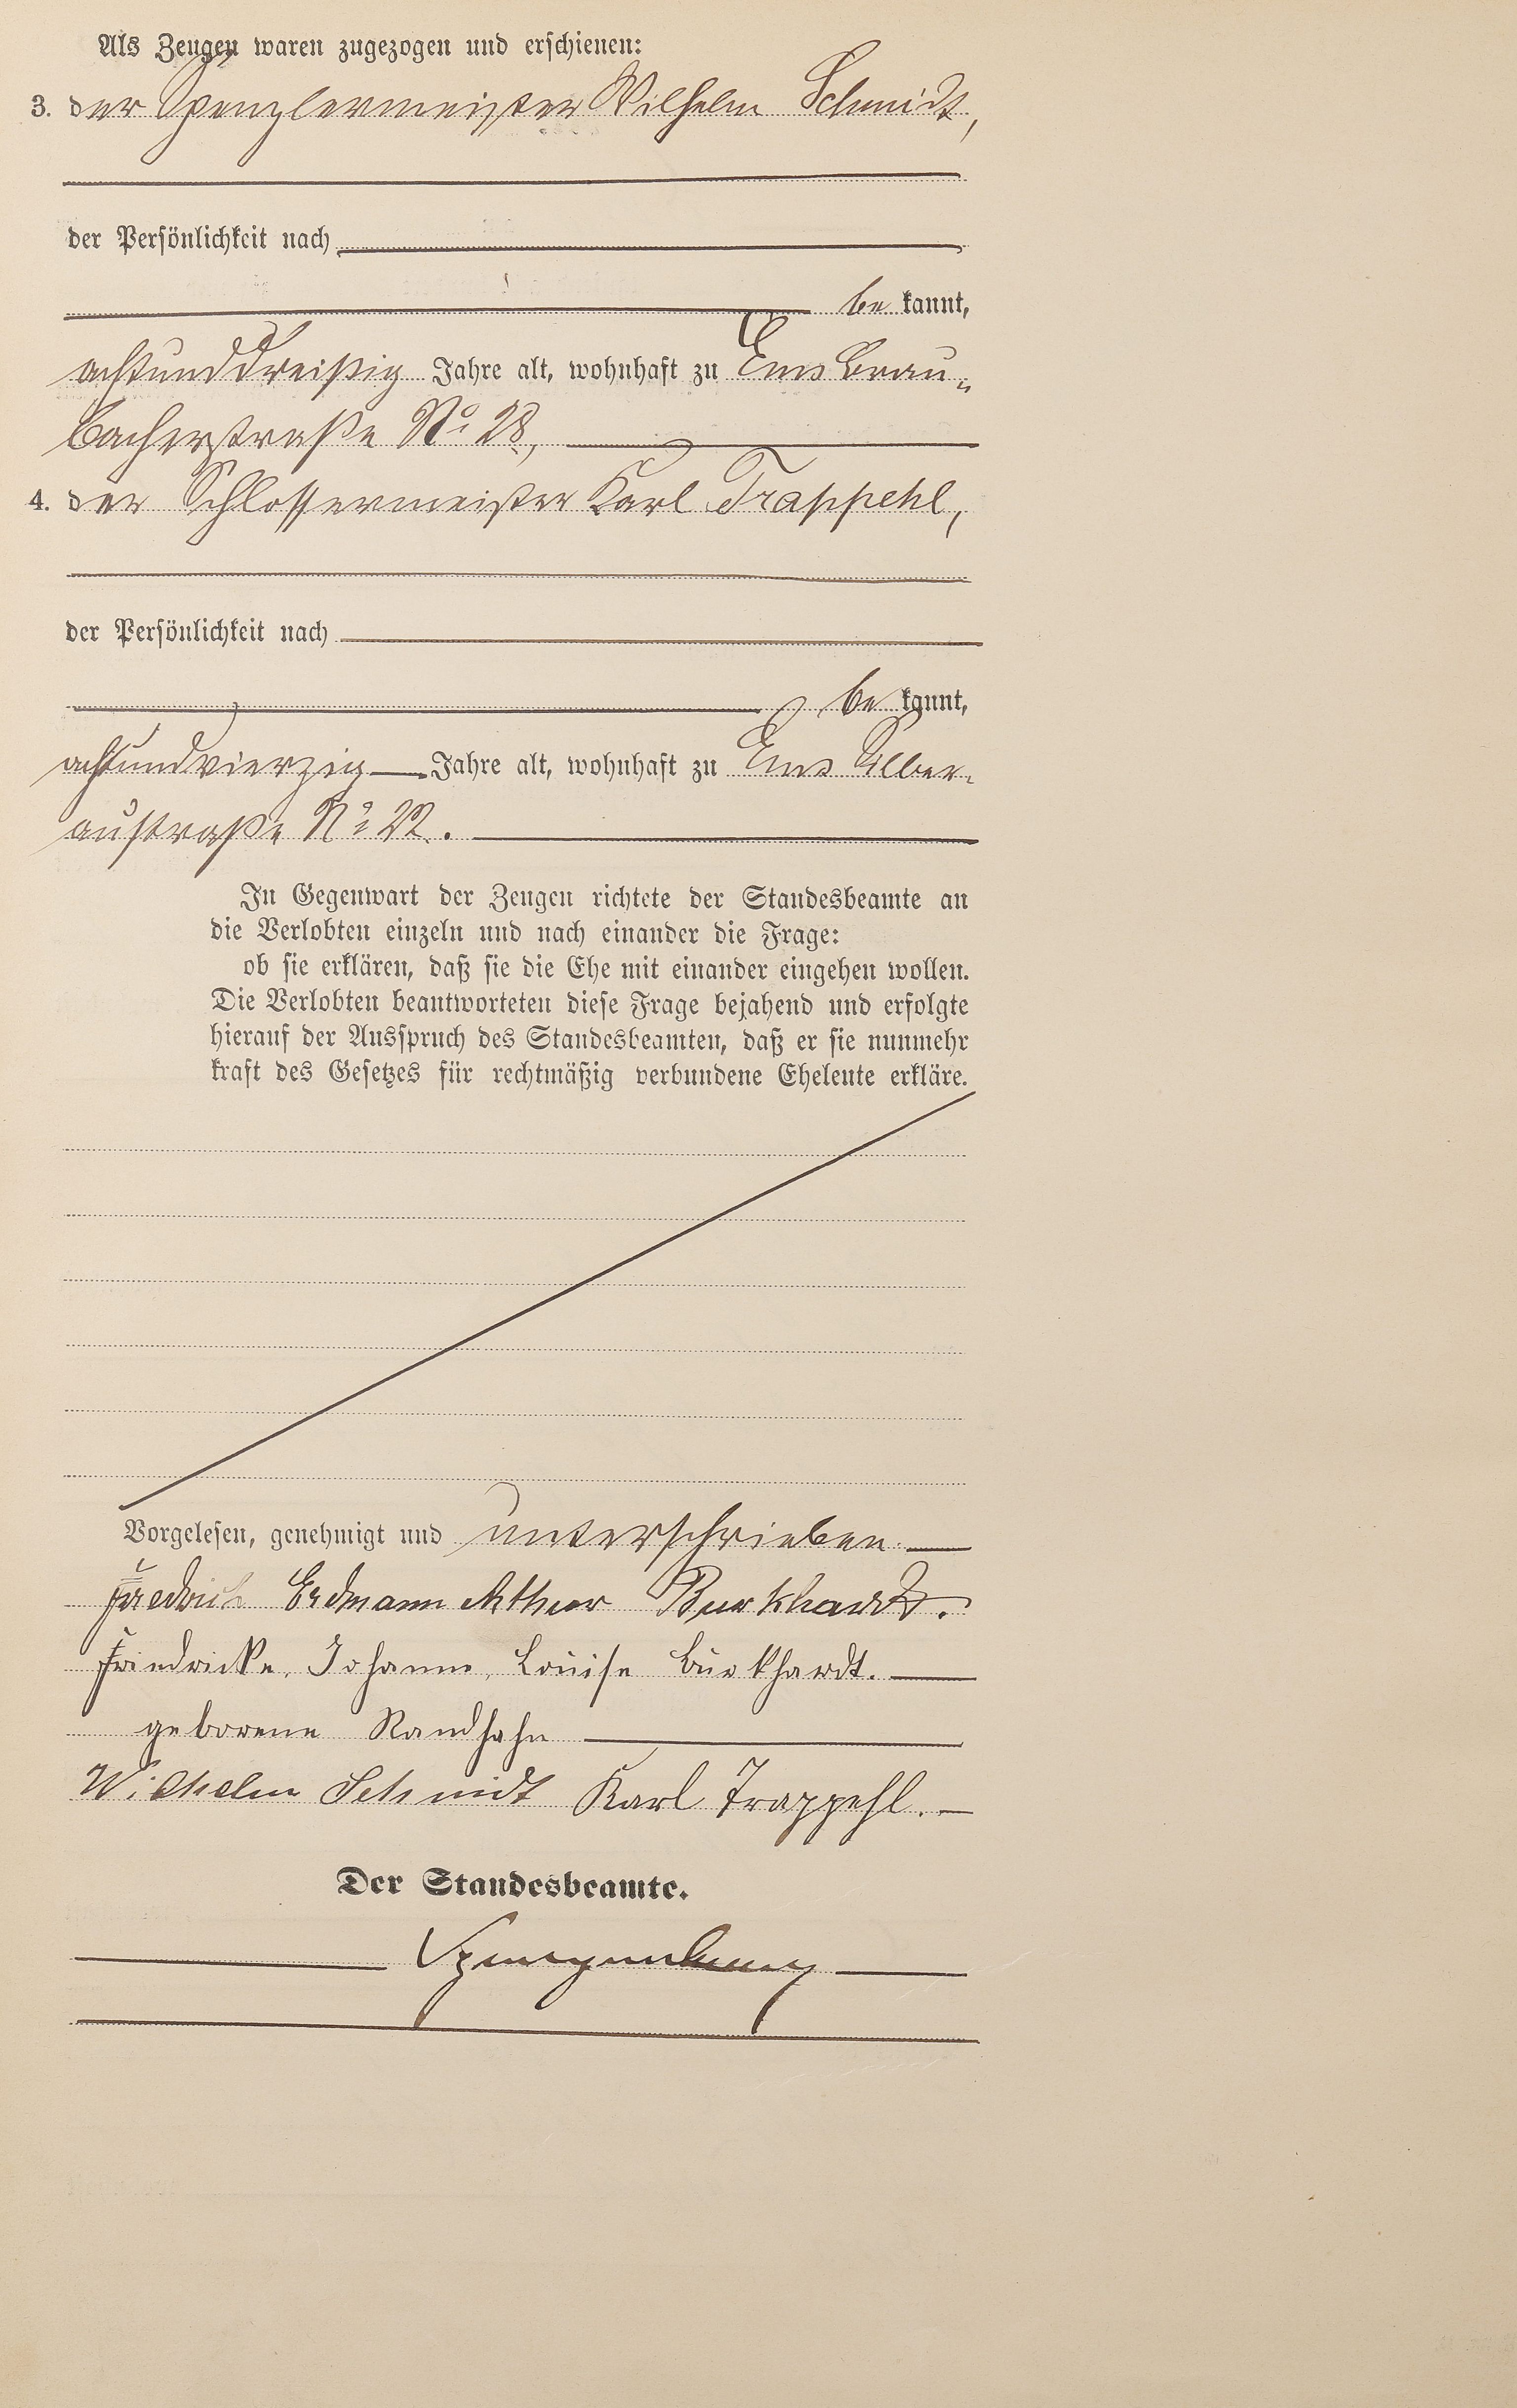 Als Zeugen waren zugezogen und erschienen:
3. der Spenglermeister Wilhelm Schmidt,
der Persönlichkeit nach
be kannt,
achtunddreißig Jahre alt, wohnhaft zu Ems Brau„
bacherstraße No 28,
4. der Schlossermeister Karl Trappehl,
der Persönlichkeit nach
be kannt,
achtundvierzig Jahre alt, wohnhaft zu Ems Silber-
austraße No 22.
In Gegenwart der Zeugen richtete der Standesbeamte an
die Verlobten einzeln und nach einander die Frage:
ob sie erklären, daß sie die Ehe mit einander eingehen wollen.
Die Verlobten beantworteten diese Frage bejahend und erfolgte
hierauf der Ausspruch des Standesbeamten, daß er sie nunmehr
kraft des Gesetzes für rechtmäßig verbundene Eheleute erkläre.
Vorgelesen, genehmigt und unterschrieben
Friedrich Erdmann Arthur Burkhardt.
Friedricke, Johanne, Louise Burkhardt.
geborene Randhahn
Wilhelm Schmidt Karl Trappehl.
Der Standesbeamte.